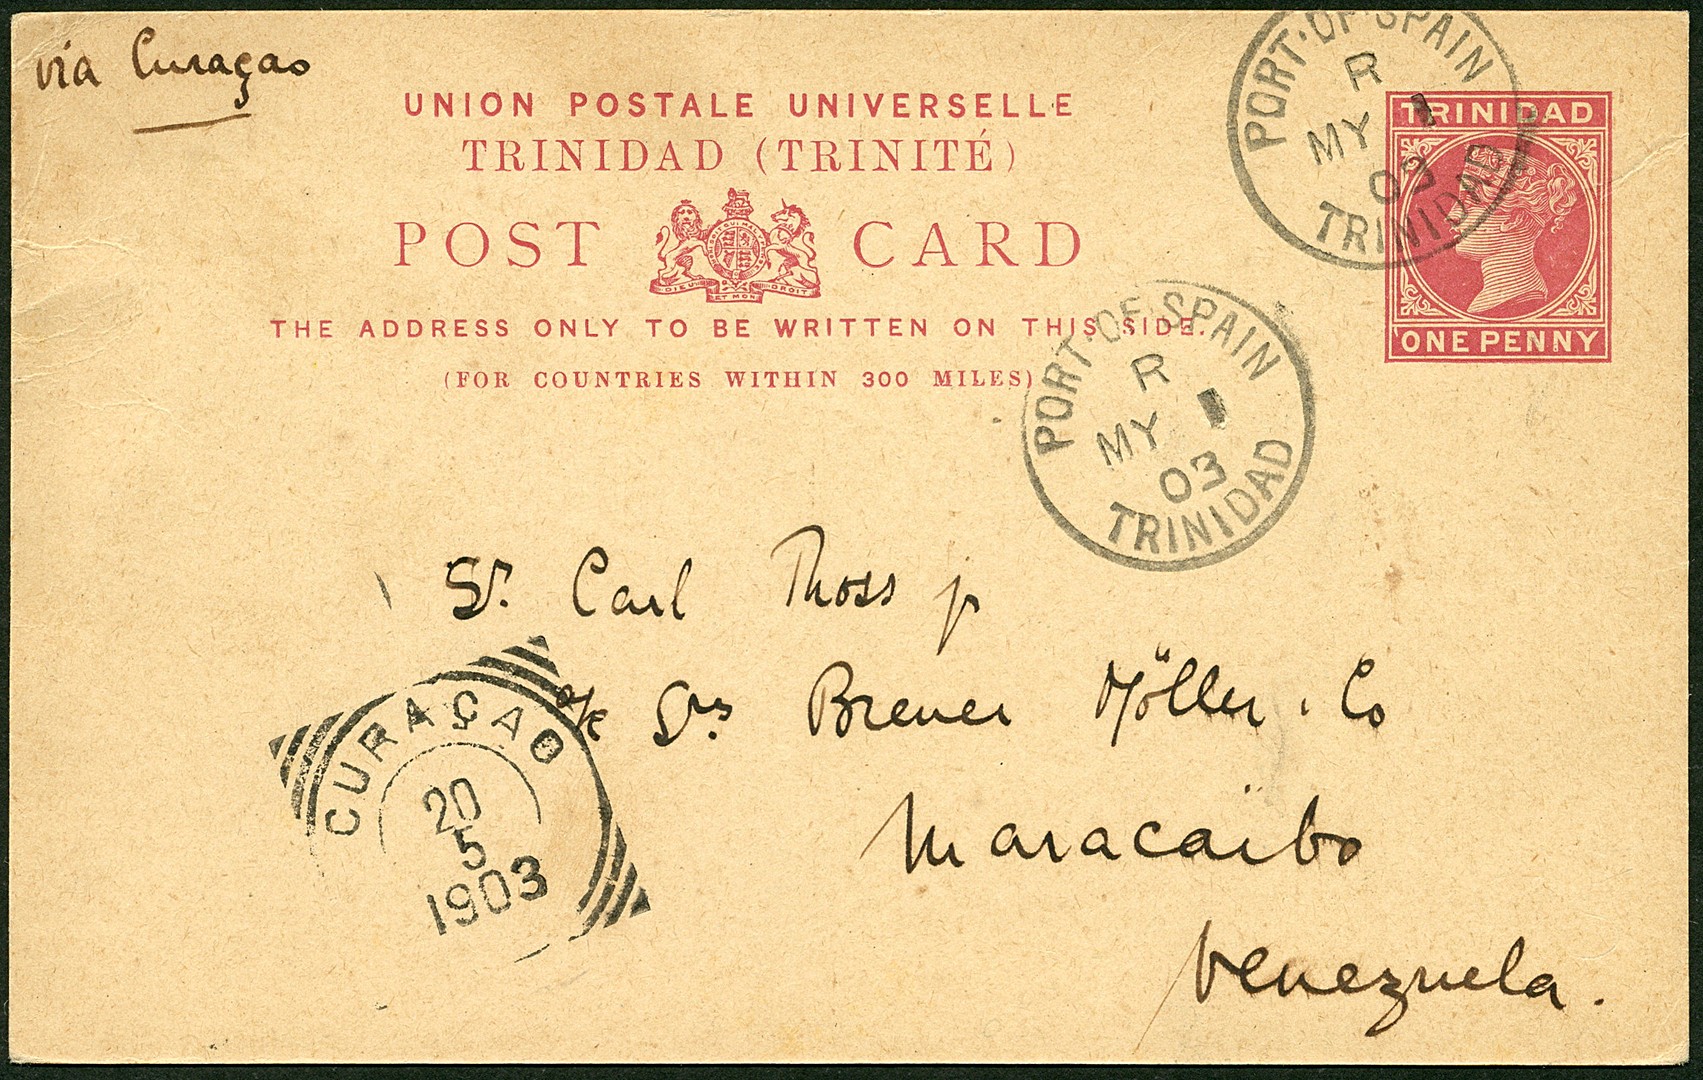 via Curaçao
UNION POSTALE UNIVERSELLE
TRINIDAD (TRINITÉ)
POST CARD
DIEU ET MON DROIT
THE ADDRESS ONLY TO BE WRITTEN ON THIS SIDE.
(FOR COUNTRIES WITHIN 300 MILES)
TRINIDAD
ONE PENNY
PORT-OF-SPAIN
R
MY 1
03
TRINIDAD
PORT-OF-SPAIN
R
MY 1
03
TRINIDAD
Sr. Carl Thoss jr
c/o Srs Brener Möller & Co
Maracaïbo
Venezuela.
CURAÇAO
20
5
1903